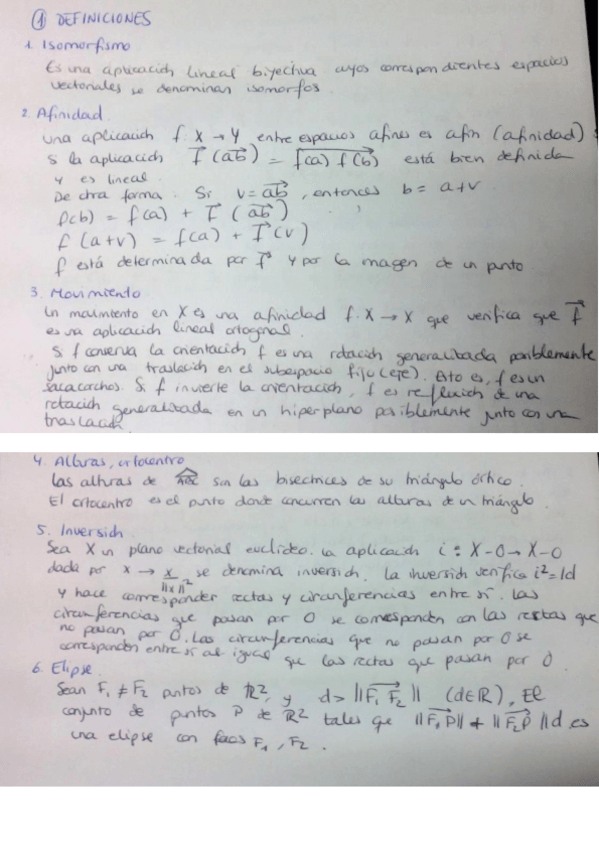 ① DEFINICIONES
1. Isomorfismo
Es una aplicación lineal biyectiva cuyos correspondientes espacios
vectoriales se denominan isomorfos.
2. Afinidad.
Una aplicación f: X → Y entre espacios afines es afín (afinidad)
si la aplicación f⃗ (ab⃗) = f(a) f(b)⃗ está bien definida
y es lineal.
De otra forma. Si v = ab⃗, entonces b = a+v
f(b) = f(a) + f⃗ (ab⃗)
f (a+v) = f(a) + f⃗ (v)
f está determinada por f⃗ y por la imagen de un punto
3. Movimiento
Un movimiento en X es una afinidad f: X → X que verifica que f⃗
es una aplicación lineal ortogonal.
Si f conserva la orientación f es una rotación generalizada posiblemente
junto con una traslación en el subespacio fijo (eje). Esto es, f es un
sacacorchos. Si f invierte la orientación, f es reflexión de una
rotación generalizada en un hiperplano posiblemente junto con una
traslación.
4. Alturas, ortocentro
Las alturas de ABC son las bisectrices de su triángulo órtico.
El ortocentro es el punto donde concurren las alturas de un triángulo.
5. Inversión
Sea X un plano vectorial euclídeo. La aplicación i : X-0 → X-0
dada por x → x/||x||² se denomina inversión. La inversión verifica i²=Id
y hace corresponder rectas y circunferencias entre sí. Las
circunferencias que pasan por 0 se corresponden con las rectas que
no pasan por 0. Las circunferencias que no pasan por 0 se
corresponden entre sí al igual que las rectas que pasan por 0
6. Elipse.
Sean F₁ ≠ F₂ puntos de ℝ², y d > ||F₁ F₂⃗|| (d∈ℝ), El
conjunto de puntos P de ℝ² tales que ||F₁P⃗|| + ||F₂P⃗|| d es
una elipse con focos F₁, F₂.